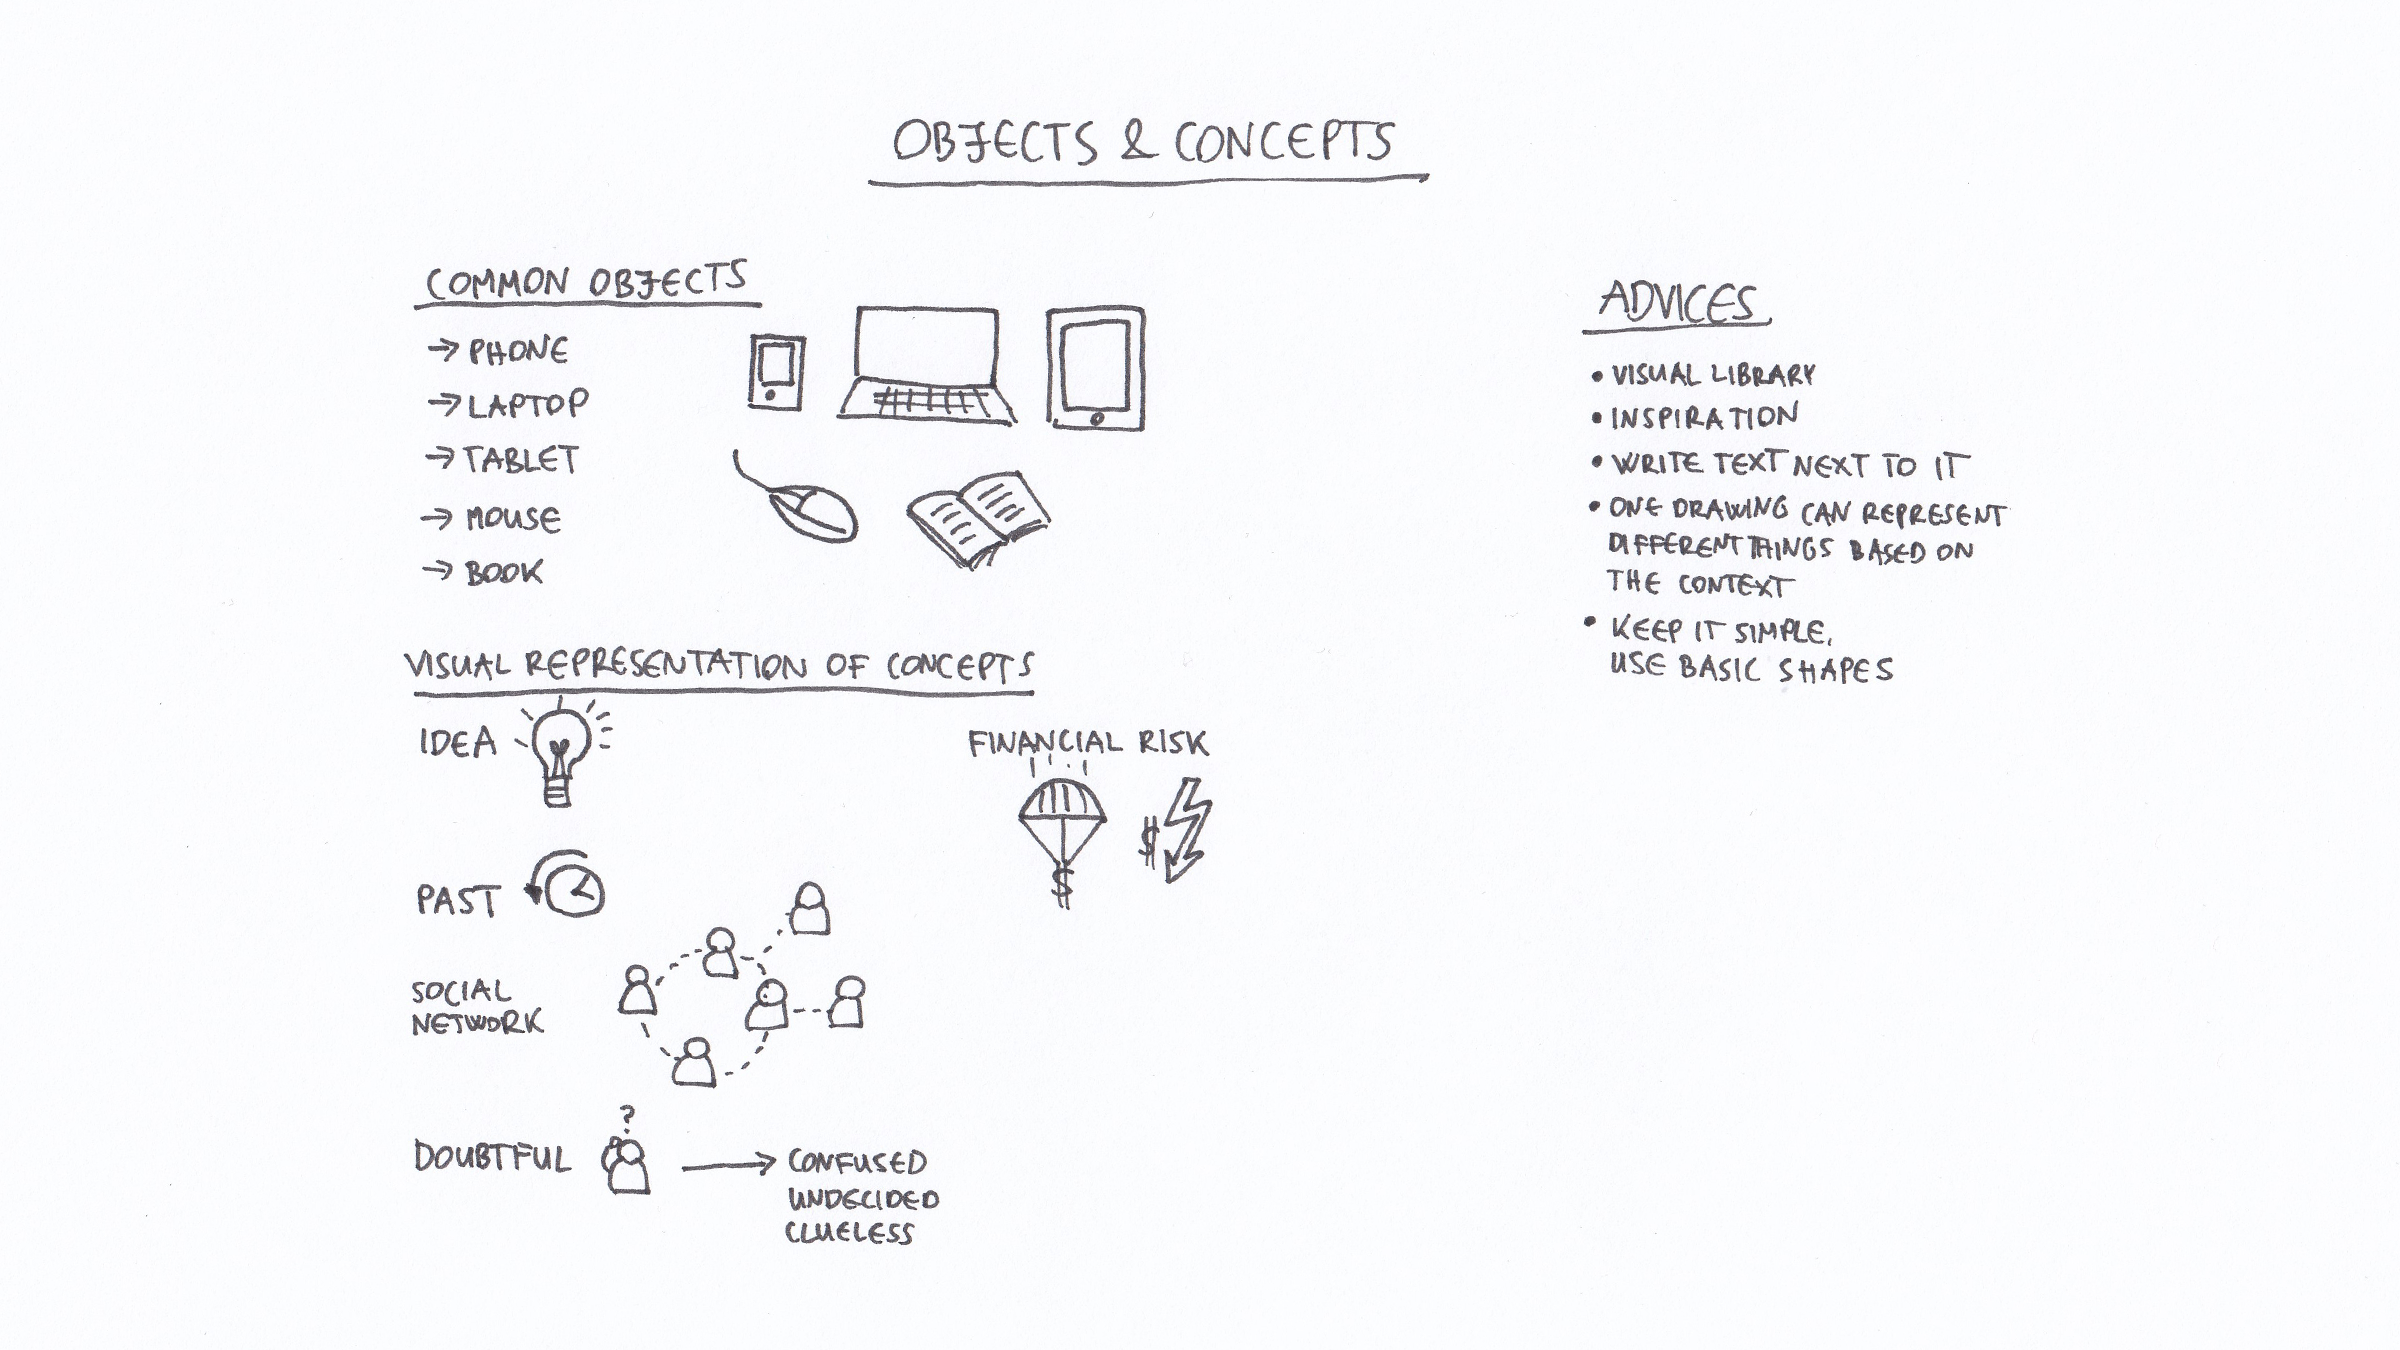 OBJECTS & CONCEPTS
COMMON OBJECTS
→ PHONE
→ LAPTOP
→ TABLET
→ MOUSE
→ BOOK
VISUAL REPRESENTATION OF CONCEPTS
IDEA
PAST
SOCIAL
NETWORK
DOUBTFUL
?
→ CONFUSED
UNDECIDED
CLUELESS
FINANCIAL RISK
$
$
ADVICES
• VISUAL LIBRARY
• INSPIRATION
• WRITE TEXT NEXT TO IT
• ONE DRAWING CAN REPRESENT
DIFFERENT THINGS BASED ON
THE CONTEXT
• KEEP IT SIMPLE,
USE BASIC SHAPES